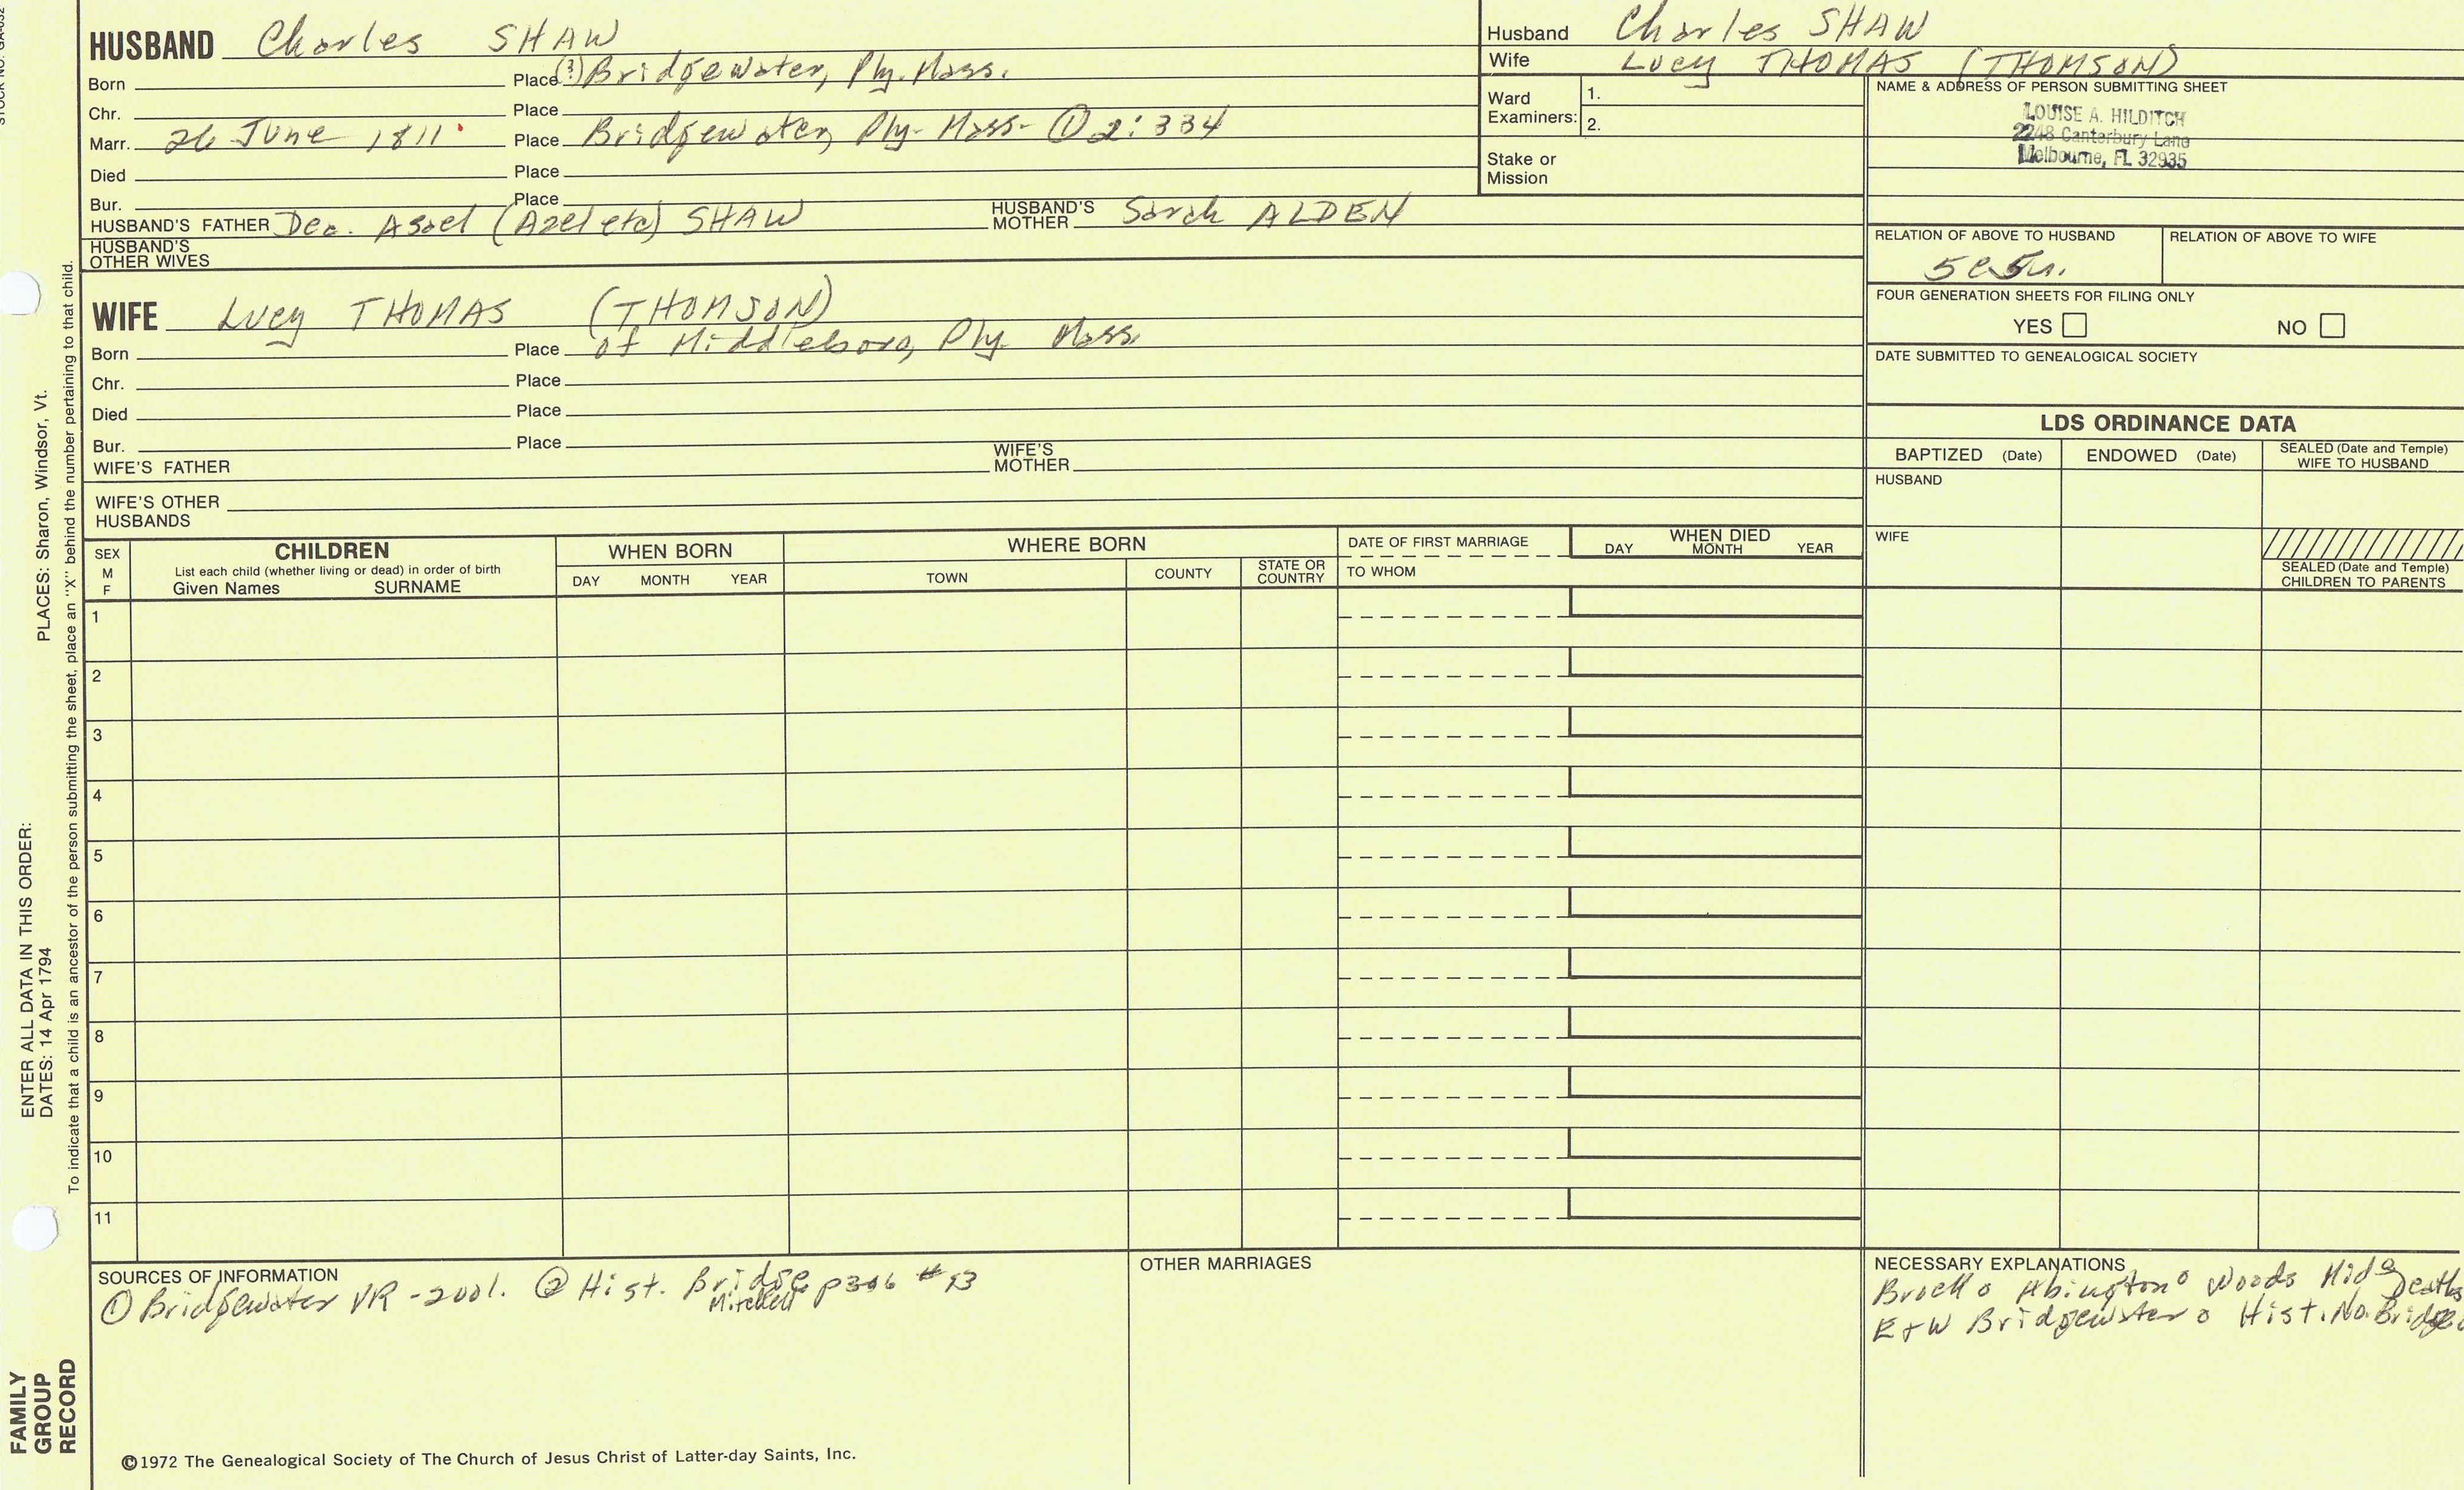 HUSBAND Charles SHAW
Born Place (?) Bridgewater, Ply. Mass.
Chr. Place
Marr. 26 June 1811 Place Bridgewater, Ply- Mass- ① 2:334
Died Place
Bur. Place
HUSBAND'S FATHER Dea. Asael (Azel etc) SHAW HUSBAND'S MOTHER Sarah ALDEN
HUSBAND'S OTHER WIVES
WIFE Lucy THOMAS (THOMSON)
Born Place of Middleboro, Ply Mass
Chr. Place
Died Place
Bur. Place
WIFE'S FATHER WIFE'S MOTHER
WIFE'S OTHER HUSBANDS
Husband Charles SHAW
Wife Lucy THOMAS (THOMSON)
Ward Examiners: 1.
2.
Stake or Mission
NAME & ADDRESS OF PERSON SUBMITTING SHEET
LOUISE A. HILDITCH
2248 Canterbury Lane
Melbourne, FL 32935
RELATION OF ABOVE TO HUSBAND RELATION OF ABOVE TO WIFE
FOUR GENERATION SHEETS FOR FILING ONLY
YES NO
DATE SUBMITTED TO GENEALOGICAL SOCIETY
LDS ORDINANCE DATA
BAPTIZED (Date) ENDOWED (Date) SEALED (Date and Temple) WIFE TO HUSBAND
HUSBAND
WIFE
SEALED (Date and Temple) CHILDREN TO PARENTS
SEX M F CHILDREN WHEN BORN WHERE BORN DATE OF FIRST MARRIAGE WHEN DIED
List each child (whether living or dead) in order of birth
Given Names SURNAME DAY MONTH YEAR TOWN COUNTY STATE OR COUNTRY TO WHOM DAY MONTH YEAR
1
2
3
4
5
6
7
8
9
10
11
SOURCES OF INFORMATION
① Bridgewater VR - 2vol. ② Hist. Bridge p306 #93
Mitchell
OTHER MARRIAGES
NECESSARY EXPLANATIONS
Abington Woods Deaths
E+W Bridgewater Hist. No. Bridge
©1972 The Genealogical Society of The Church of Jesus Christ of Latter-day Saints, Inc.
PLACES: Sharon, Windsor, Vt.
ENTER ALL DATA IN THIS ORDER:
DATES: 14 Apr 1794
To indicate that a child is an ancestor of the person submitting the sheet, place an "X" behind the number pertaining to that child.
FAMILY
GROUP
RECORD